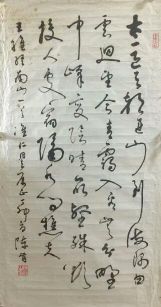 太乙近天都連山到海隅白
雲迴望合青靄入看無分野
中峰變陰晴眾壑殊欲
投人處宿隔水問樵夫
王維終南山一首